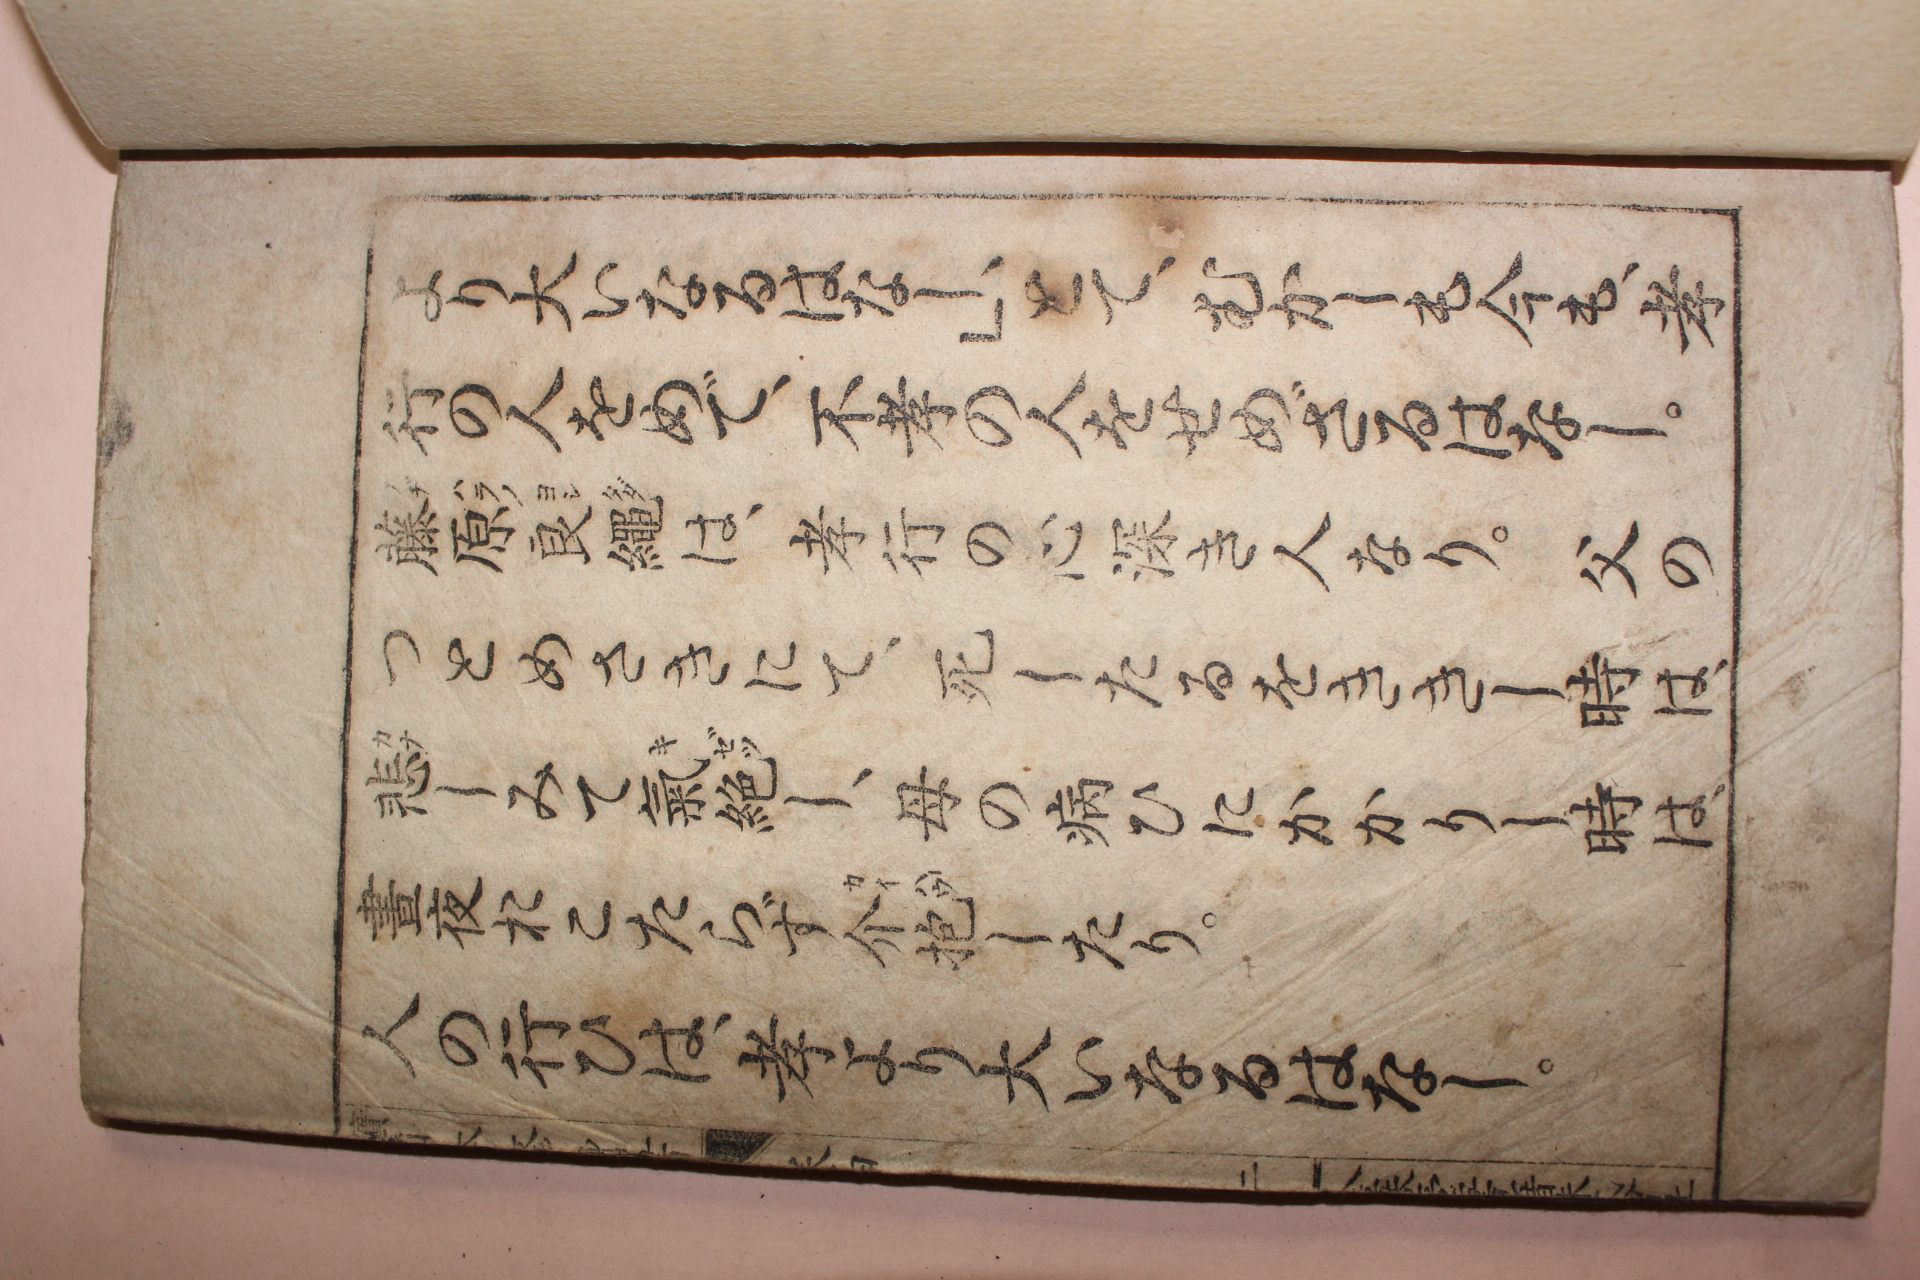 より大いなるはなし」、とて、むかしも今も、孝
行の人をめで、不孝の人をせめざるはなし。
藤原良繩は、孝行の心深き人なり。 父の
フヂハラノヨシタダ
つとめさきにて、死したるをききし時は、
悲しみて氣絶し、母の病ひにかかりし時は、
カナ キゼツ
晝夜おこたらず介抱したり。
カイハウ
人の行ひは、孝より大いなるはなし。
二